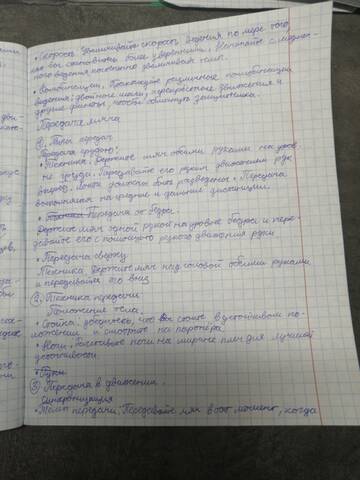 • Скорость: Увеличивайте скорость ведения по мере того
как вы становитесь более уверенными. Начинайте с медлен-
ного ведения постепенно увеличивая темп.
• Комбинации: Пробуйте различные комбинации
ведения: двойные шаги, перекрестные движения и
другие финты, чтобы обмануть защитника.
Передача мяча
① Типы передач
Передача грудью:
• Техника: Держите мяч обеими руками на уровне
груди. Передавайте его резким движением рук
вперед. Локти должны быть разведены. Передача
выполняется на средние и дальние дистанции.
• Передача от бедра.
Держите мяч одной рукой на уровне бедра и пере-
давайте его с помощью резкого движения руки
• Передача сверху
Техника: Держите мяч над головой обеими руками
и передавайте его вниз
② Техника передачи
Положение тела:
• Стойка: убедитесь, что вы стоите в устойчивом по-
ложении и смотрите на партнера
• Ноги: Расставьте ноги на ширине плеч для лучшей
устойчивости
• Руки:
③ Передача в движении.
Синхронизация
• Темп передачи: Передавайте мяч в тот момент, когда